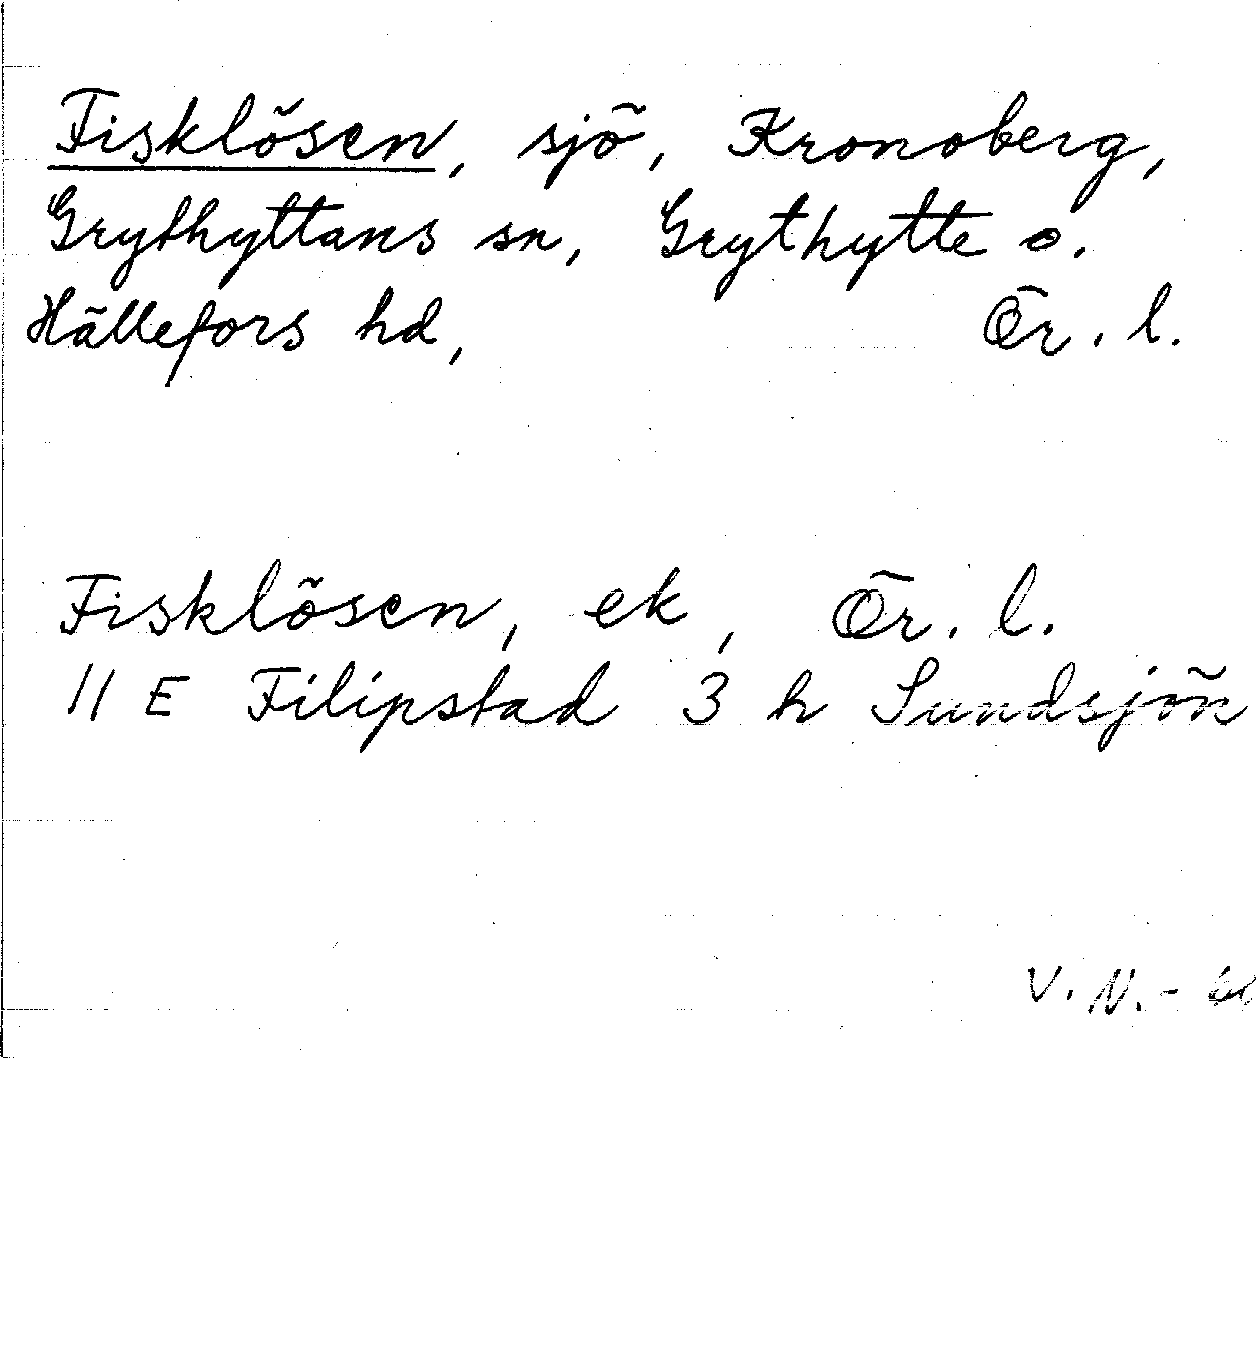 Fisklösen, sjö, Kronoberg,
Grythyttans sn, Grythytte o.
Hällefors hd, Ör. l.
Fisklösen, ek, Ör. l.
11 E Filipstad 3 h Sundsjön
V. N. -